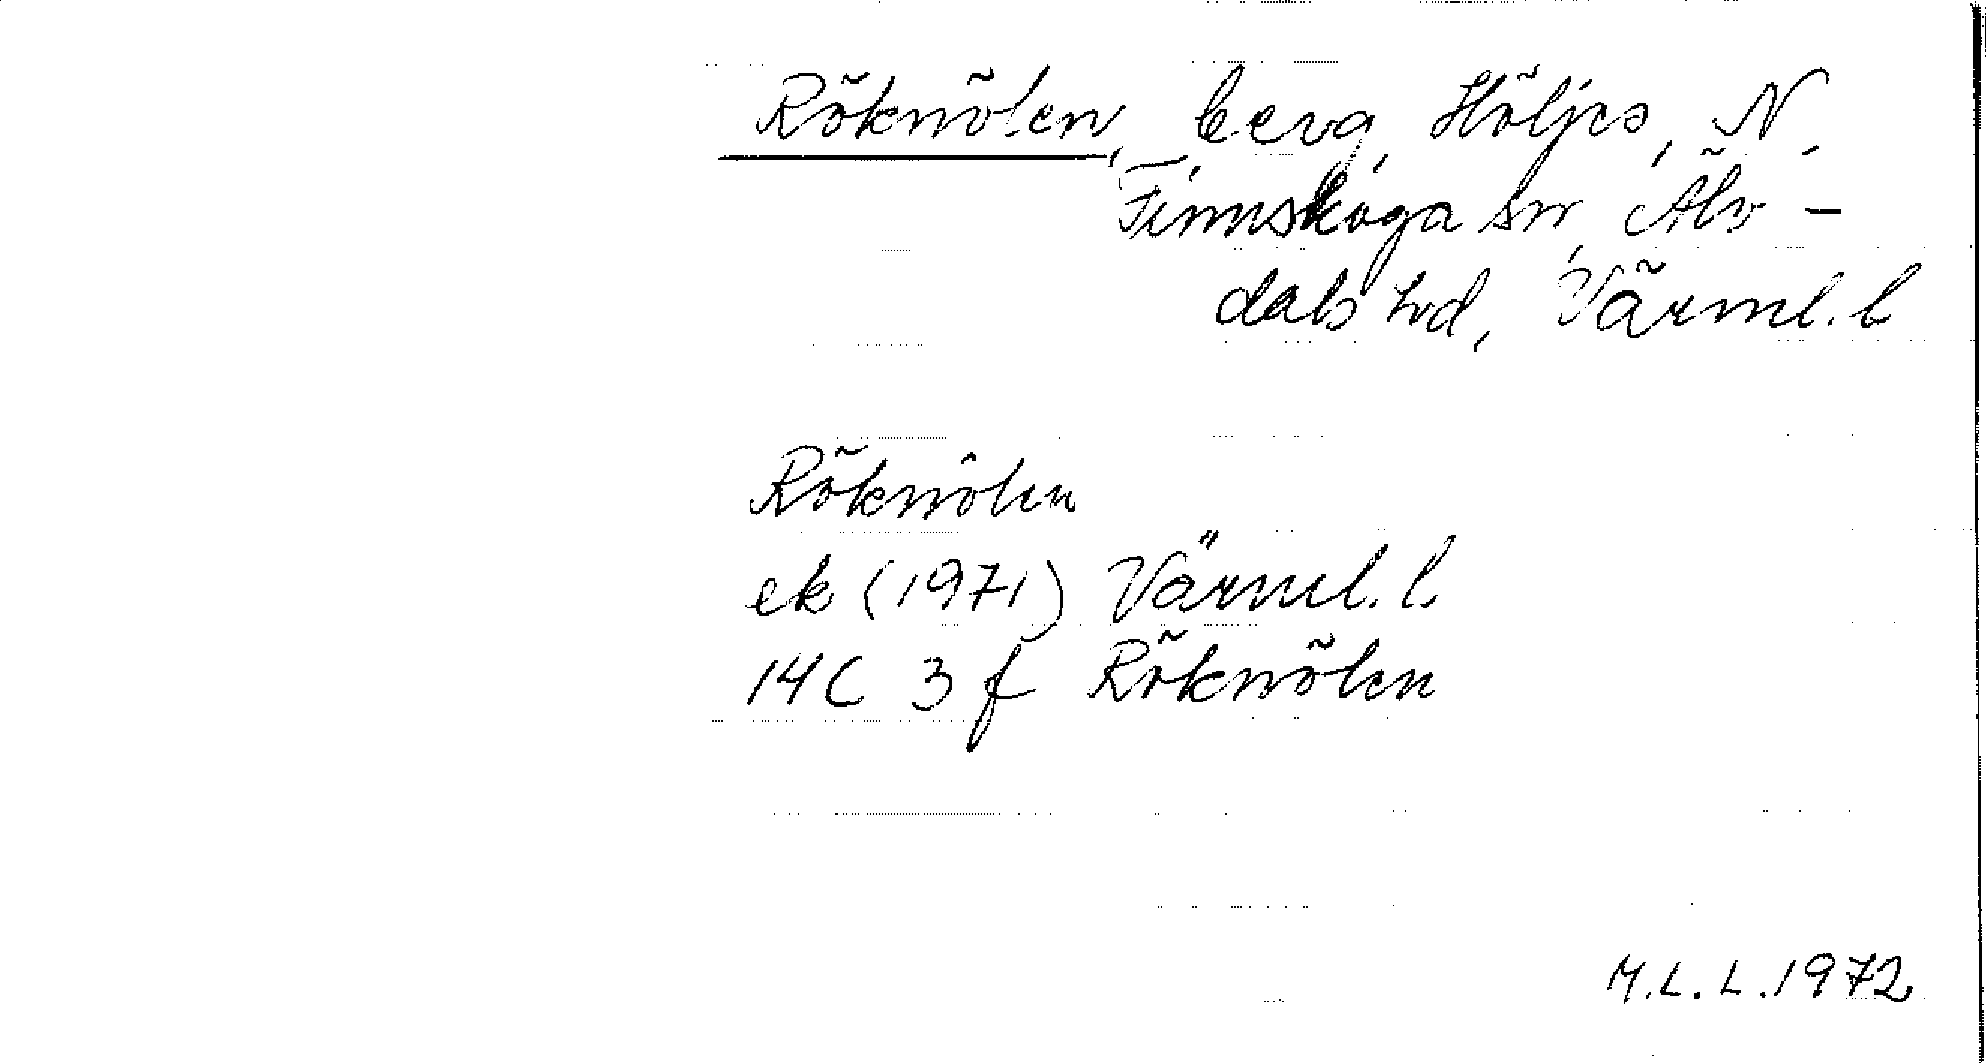 Röknölen, berg, Höljes, N.
Finnskoga sn, Älv-
dals hd, Värml. l
Röknölen
ek (1971) Värml. l.
14C 3f Röknölen
M.L.L. 1972